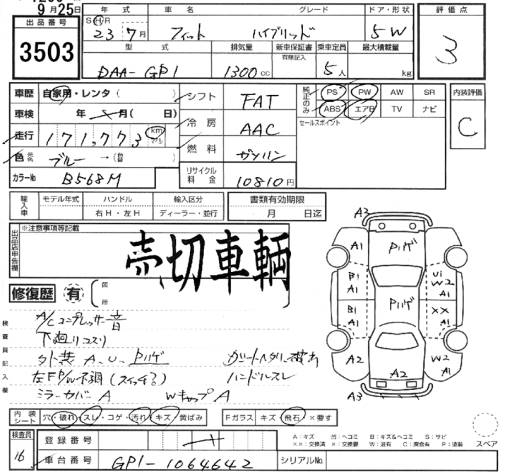 9月25日
出品番号 3503
年式 車名 グレード ドア・形状 評価点
S H 23 7月 フィット ハイブリッド 5W 3
型式 排気量 新車保証書 有無記入 乗車定員 最大積載量
DAA-GP1 1300cc 5人 kg
車歴 自家用・レンタ( ) シフト FAT 純正のみ PS PW AW SR 内装評価
車検 年 月( 日) 冷房 AAC ABS エアB TV ナビ C
走行 171,773 km 燃料 ガソリン セールスポイント
色 ブルー→(替 )
カラーNo B568M リサイクル料金 10810円
輸入車 モデル年式 ハンドル 輸入区分 書類有効期限
右H・左H ディーラー・並行 月 日迄
出品店申告欄 ※注意事項等記載
売切車両
修復歴 有 箇所
検査員記入欄
A/Cコンプレッサー音
下廻りコスリ
外装A、U、Pハゲ
左FP/W不調(スイッチ?) ハンドルスレ
ミラーカバーA WキャップA
A3 A1 Pハゲ A1
B1 A1 U1 W2 A1
B1 A1 Pハゲ XX A1
A2 W2 A1
A3 A2
内装シート 穴・破れ・スレ・コゲ・汚れ・キズ・黄ばみ Fガラス キズ・飛石・×要す スペア
検査員 16 登録番号
A:キズ U:ヘコミ B:キズ&ヘコミ S:サビ
XX:交換済 X:交換要 W:波有 C:腐食有 P:塗装
車台番号 GP1-1064642 シリアルNo